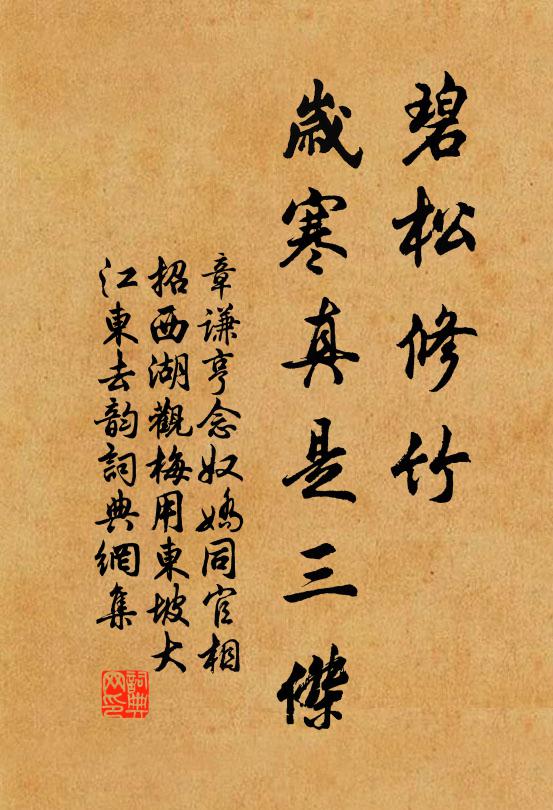 碧松修竹
歲寒真是三傑
章謙亨念奴嬌同官相
招西湖觀梅用東坡大
江東去韵詞典網集
詞典
网印